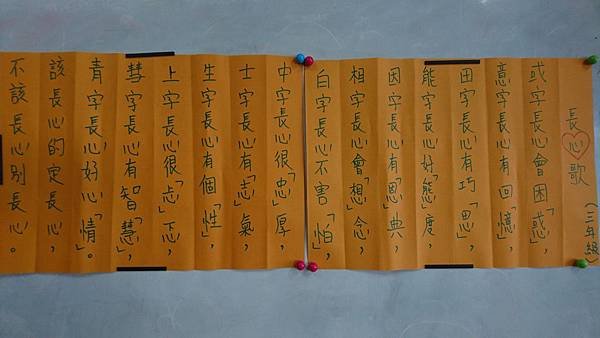 長心歌
(三年級)
或字長心會困「惑」,
意字長心有回「憶」,
田字長心有巧「思」,
能字長心好「態」度,
因字長心有「恩」典,
相字長心會「想」念,
白字長心不害「怕」,
中字長心很「忠」厚,
士字長心有「志」氣,
生字長心有個「性」,
上字長心很「忐」忑,
彗字長心有智「慧」,
青字長心好心「情」。
該長心的定長心,
不該長心別長心。